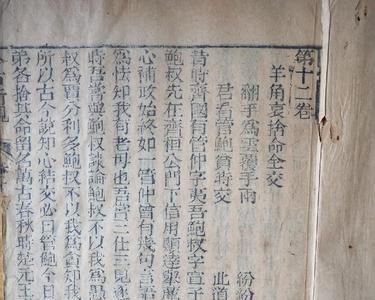 第十二卷
羊角哀捨命全交
翻手爲雲覆手雨 紛紛
君看管鮑貧時交 此道
昔時齊國有管仲字夷吾鮑叔字宣子
鮑叔先在齊桓公門下信用顯達舉薦
心輔政始終如一管仲曾有幾句言語
爲怯知我有老母也吾嘗三仕三見逐
時吾嘗與鮑叔談論鮑叔不以我爲愚
叔爲賈分利多鮑叔不以我爲貪知我
所以古今說知心結交必曰管鮑今日
弟各捨其命留名萬古春秋時楚元王